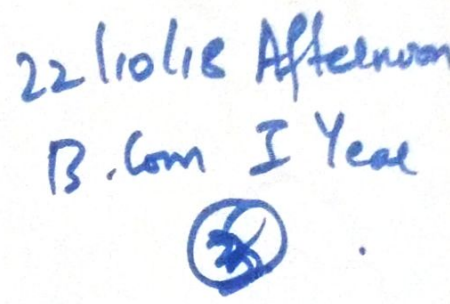 22/10/18 Afternoon
B.Com I Year